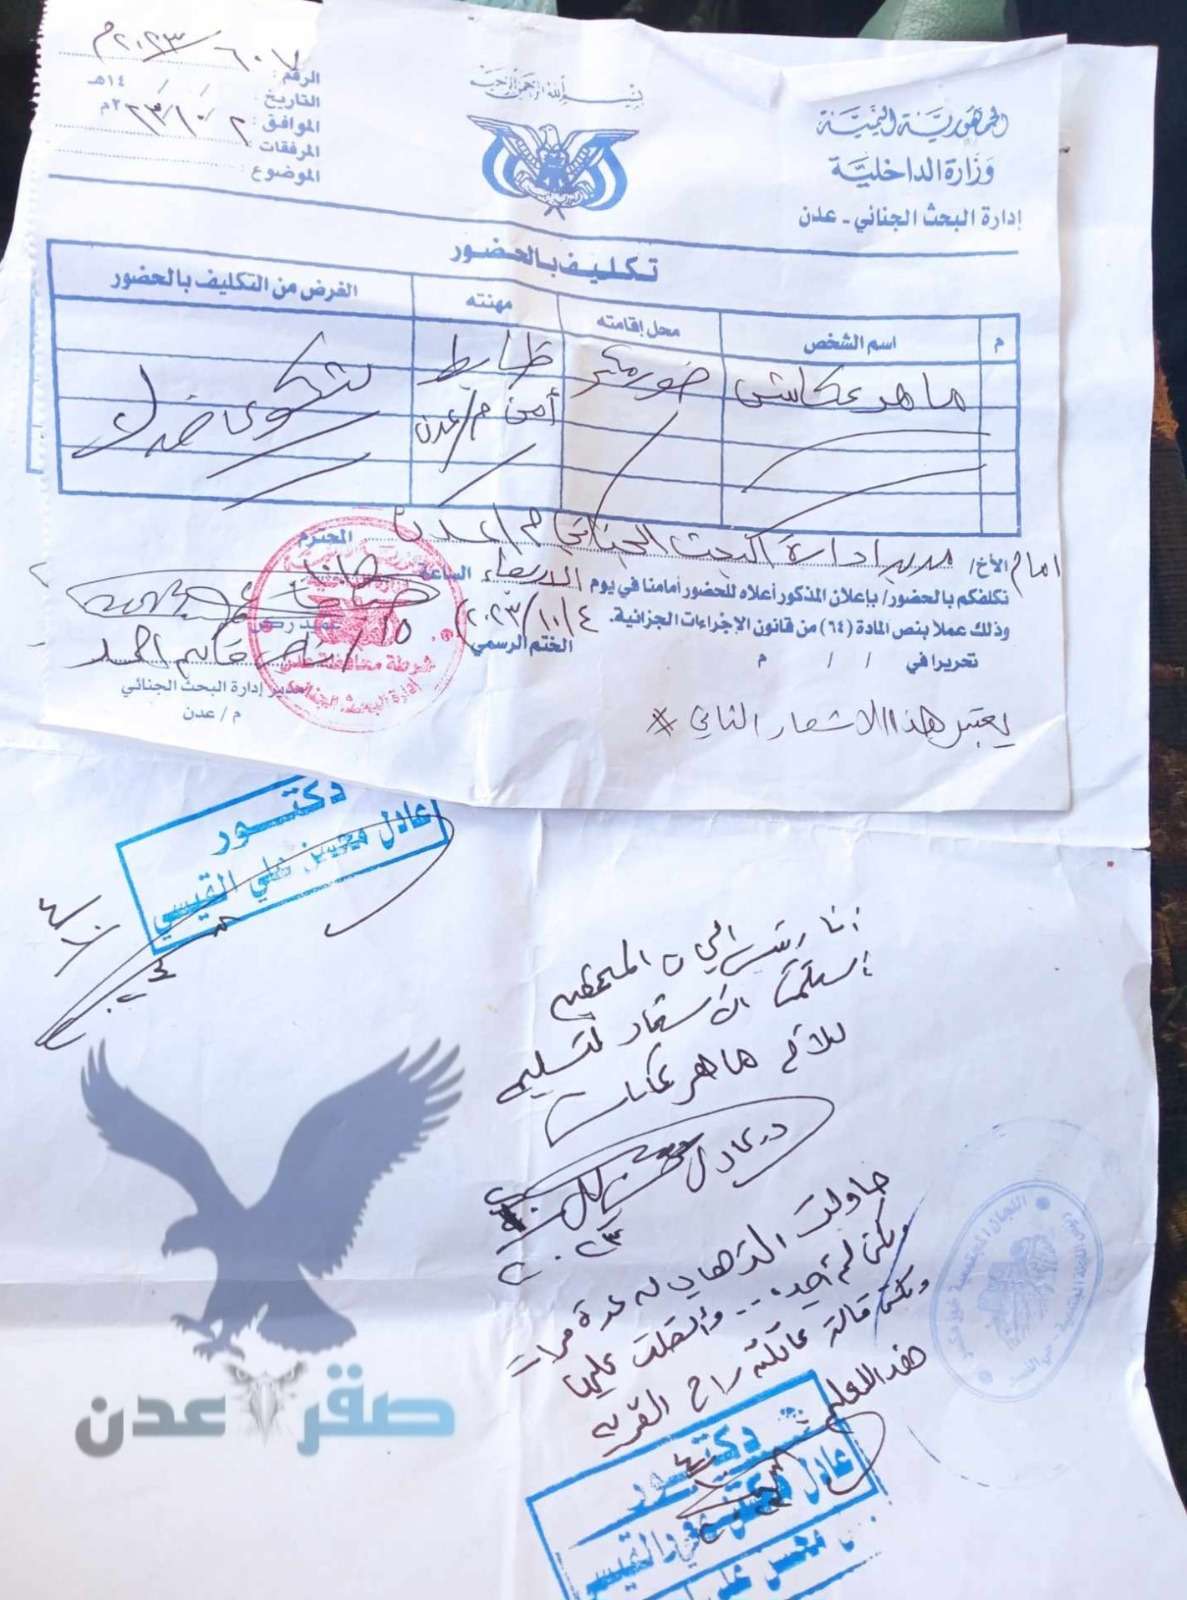 بسم الله الرحمن الرحيم
الجمهورية اليمنية
وزارة الداخلية
إدارة البحث الجنائي - عدن
الرقم : ٦٠٧ / ٢٠٢٣م
التاريخ : / / ١٤هـ
الموافق : ٢ / ١٠ / ٢٠٢٣م
المرفقات :
الموضوع :
تكليف بالحضور
م اسم الشخص محل إقامته مهنته الغرض من التكليف بالحضور
ماهر عكاشي خورمكسر ظابط شكوى ضدك
أمن م/عدن
امام الأخ/ مدير ادارة البحث الجنائي م/عدن المحترم
نكلفكم بالحضور/ بإعلان المذكور أعلاه للحضور أمامنا في يوم الاربعاء الساعة
٢٠٢٣/١٠/٤
وذلك عملا بنص المادة (٦٤) من قانون الإجراءات الجزائية.
تحريرا في / / م
الختم الرسمي
مدير إدارة البحث الجنائي
م / عدن
شرطة محافظة عدن
إدارة البحث الجنائي
يعتبر هذا الاشعار الثاني #
دكتور
عادل محسن علي القيسي
أنا رئيس
استلمت
للاخ ماهر
د. عادل
حاولت الذهاب له عدة مرات
ولكن لم أجده.. واتصلت عليه
ولكن قالت عائلته راح القرية
هذا للعلم
اللجان المجتمعية خورمكسر
دكتور
عادل محسن علي القيسي
صقر عدن